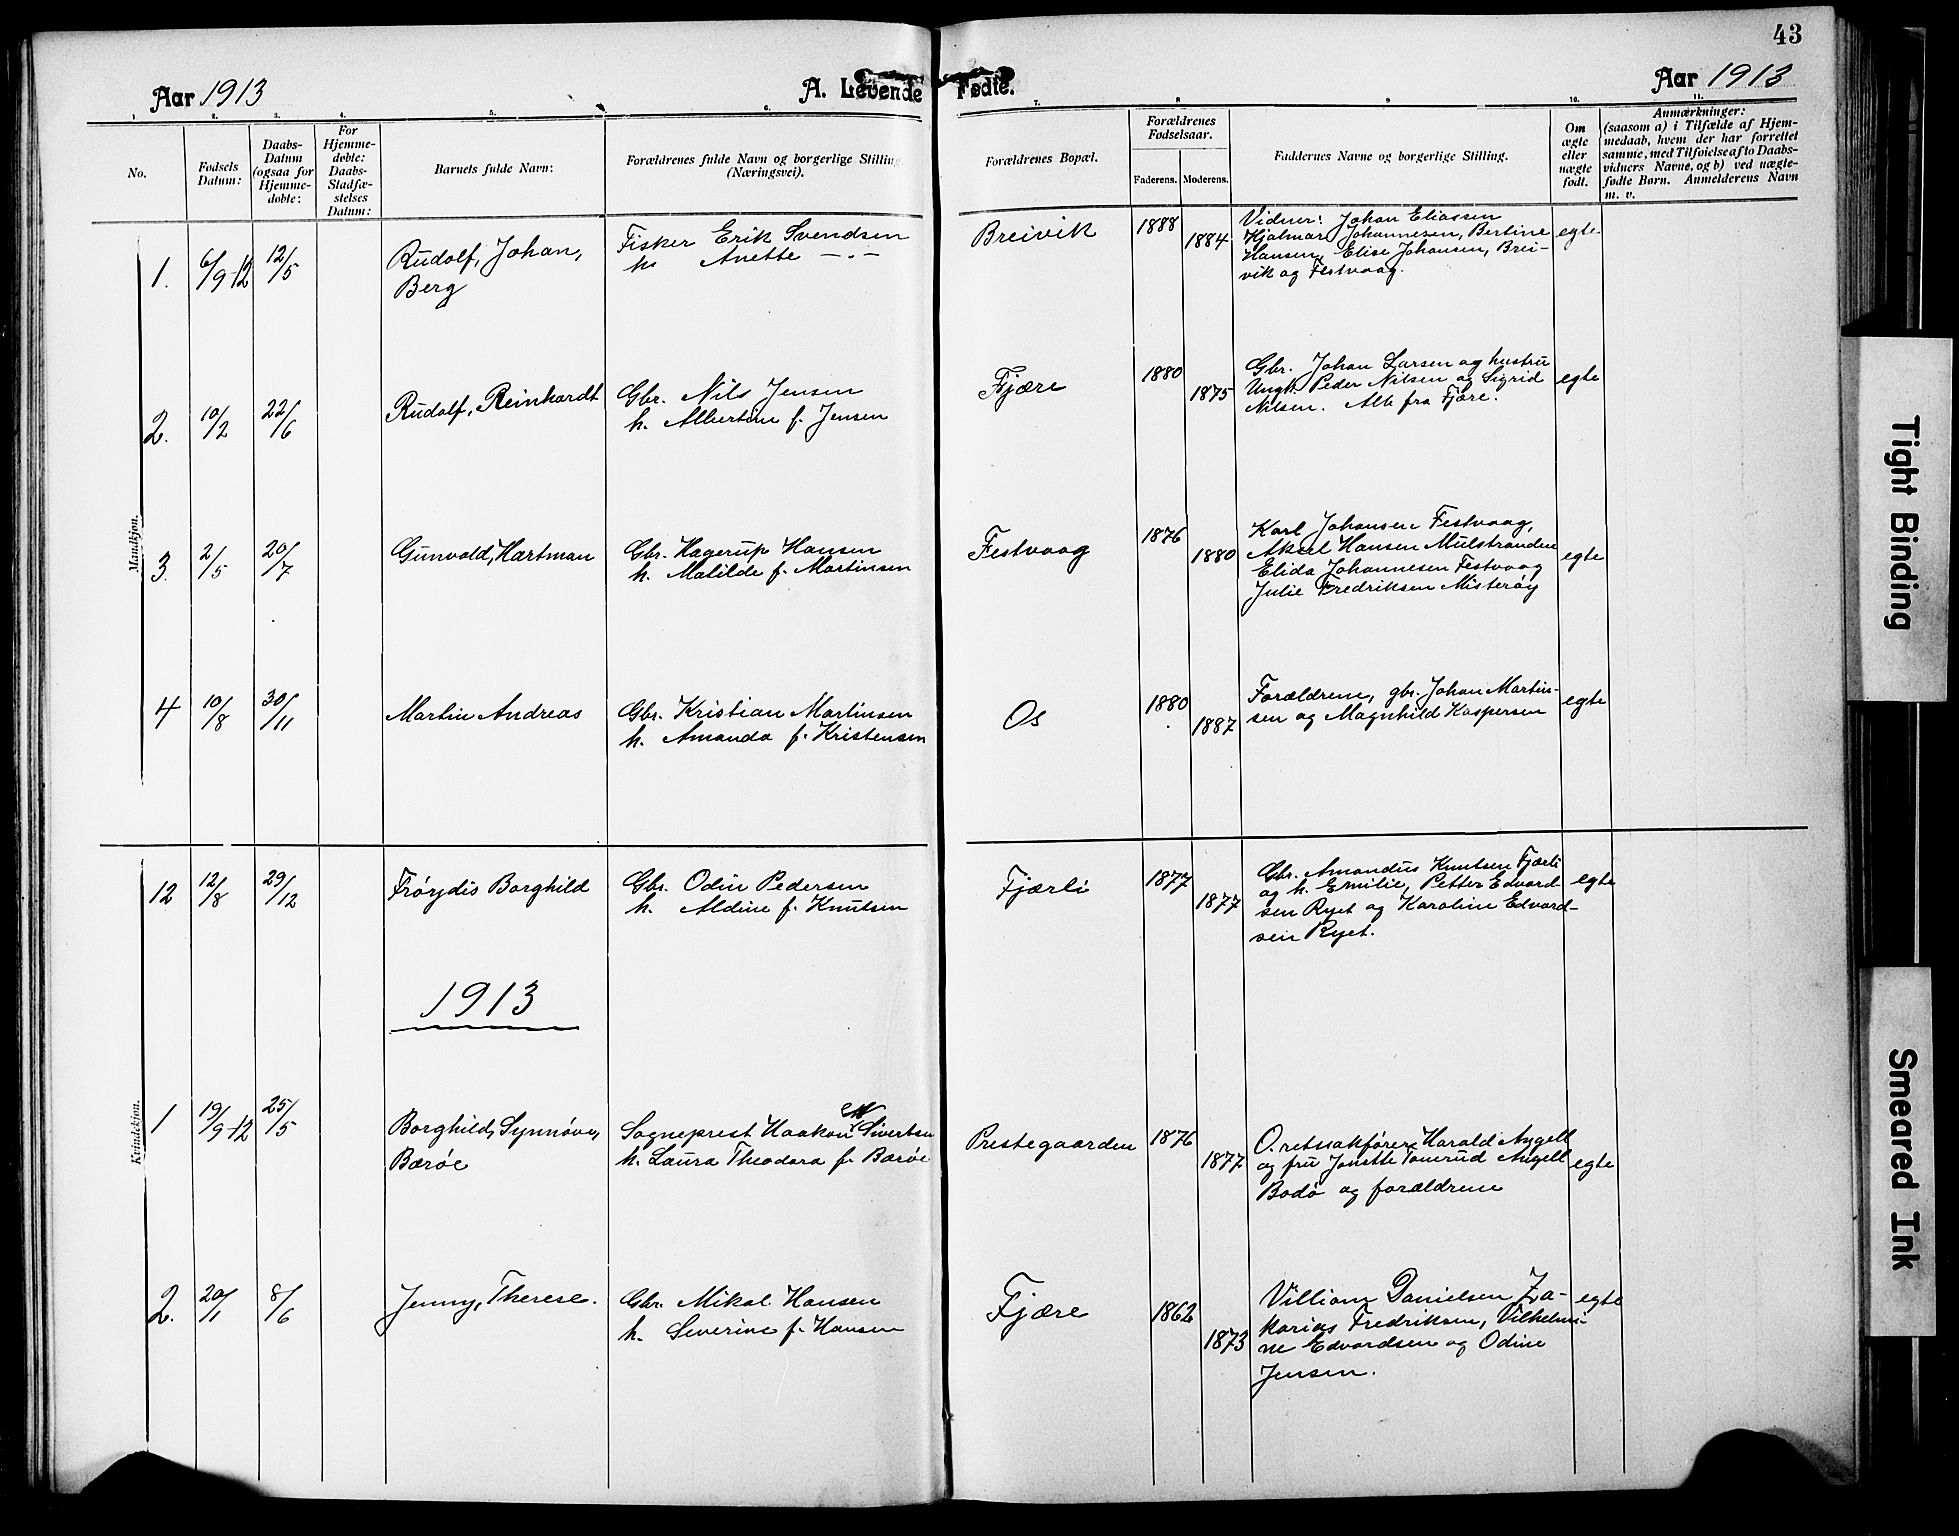 43
Aar 1913
A. Levende Fødte.
Aar 1913
1. 2. 3. 4. 5. 6. 7. 8 9 10. 11.
No.
Fødsels Datum:
Daabs-
Datum
(ogsaa for
Hjemme-
døbte:
For
Hjemme-
døbte:
Daabs-
Stadfæ-
stelses
Datum:
Barnets fulde Navn:
Forældrenes fulde Navn og borgerlige Stilling
(Næringsvei).
Forældrenes Bopæl.
Forældrenes
Fødselsaar.
Faderens. Moderens.
Faddernes Navne og borgerlige Stilling.
Om
ægte
eller
nægte
født.
Anmærkninger:
(saasom a) i Tilfælde af Hjem-
medaab, hvem der har forrettet
samme, med Tilføielse af to Daabs-
vidners Navne, og b) ved nægte-
fødte Børn. Anmelderens Navn
m. v.
Mandkjøn.
1. 6/9-12 12/5
Rudolf, Johan,
Berg
Fisker Erik Svendsen
h. Anette -"-
Breivik
1888
1884
Vidner: Johan Eliassen
Hjalmar Johannesen, Bertine
Hansen, Elise Johansen, Brei-
vik og Festvaag.
egte
2. 10/2 22/6
Rudolf, Reinhardt
Gbr. Nils Jensen
h. Albertine f. Jensen
Fjære
1880
1875
Gbr. Johan Larsen og hustru
Ungk. Peder Nilsen og Sigrid
Nilsen. Alle fra Fjære.
egte
3. 2/5 20/7
Gunvald, Hartman
Gbr. Hagerup Hansen
h. Matilde f. Martinsen
Festvaag
1876
1880
Karl Johansen Festvaag,
Aksel Hansen Mulstranden
Elida Johannesen Festvaag
Julie Fredriksen Misterøy
egte
4 10/8 30/11
Martin Andreas
Gbr. Kristian Martinsen
h. Amanda f. Kristensen
Os
1880
1887
Forældrene, gbr. Johan Martin-
sen og Magnhild Kaspersen
egte
Kvindekjøn.
12 12/8 29/12
Frøydis Borghild
Gbr. Odin Pedersen
h. Aldine f. Knutsen
Fjærli
1877
1877
Gbr. Amandus Knutsen Fjærli
og h. Emilie, Petter Edvard-
sen Ryet og Karoline Edvard-
sen Ryet.
egte
1913
1 19/9-12 25/5
Borghild, Synnøve,
Bærøe
Sogneprest Haakon Sivertsen
h. Laura Theodora f. Bærøe
Prestegaarden
1876
1877
O.retssakfører Harald Angell
og fru Angell
Bodø og forældrene
egte
2. 20/1 8/6
Jenny, Therese.
Gbr. Mikal Hansen
h. Severine f. Hansen
Fjære
1862
1873
Villiam Danielsen Za-
karias Fredriksen, Vilhelmi-
ne Edvardsen og Odine
Jensen.
egte
Tight Binding
Smeared Ink